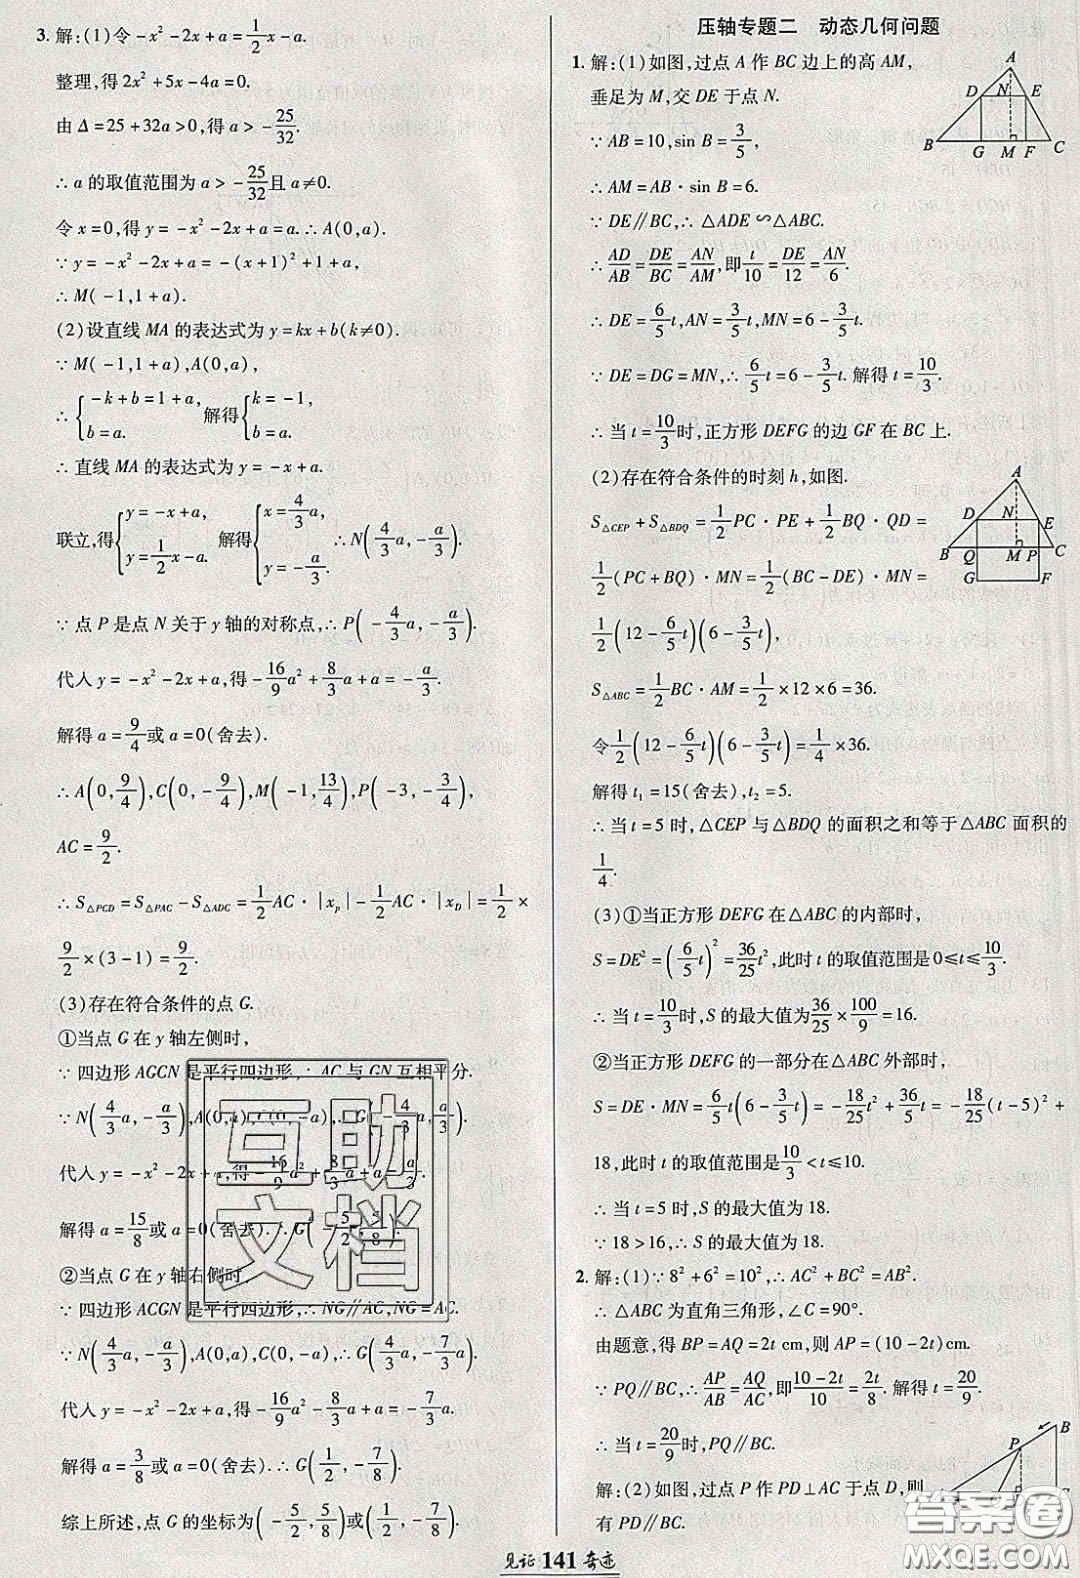 3. 解:(1)令 -x² - 2x + a = 1/2 x - a.
整理,得 2x² + 5x - 4a = 0.
由 Δ = 25 + 32a > 0,得 a > -25/32.
∴ a 的取值范围为 a > -25/32 且 a ≠ 0.
令 x = 0,得 y = -x² - 2x + a = a. ∴ A(0, a).
∵ y = -x² - 2x + a = -(x + 1)² + 1 + a,
∴ M(-1, 1 + a).
(2)设直线 MA 的表达式为 y = kx + b(k ≠ 0).
∵ M(-1, 1 + a), A(0, a),
∴ { -k + b = 1 + a, b = a. 解得 { k = -1, b = a.
∴ 直线 MA 的表达式为 y = -x + a.
联立,得 { y = -x + a, y = 1/2 x - a. 解得 { x = 4/3 a, y = -a/3. ∴ N(4/3 a, -a/3).
∵ 点 P 是点 N 关于 y 轴的对称点, ∴ P(-4/3 a, -a/3).
代入 y = -x² - 2x + a,得 -16/9 a² + 8/3 a + a = -a/3.
解得 a = 9/4 或 a = 0(舍去).
∴ A(0, 9/4), C(0, -9/4), M(-1, 13/4), P(-3, -3/4),
AC = 9/2.
∴ S△PCD = S△PAC - S△ADC = 1/2 AC · |xp| - 1/2 AC · |xD| = 1/2 ×
9/2 × (3 - 1) = 9/2.
(3)存在符合条件的点 G.
①当点 G 在 y 轴左侧时,
∵ 四边形 AGCN 是平行四边形, ∴ AC 与 GN 互相平分.
∵ N(4/3 a, -a/3), A(0, a), C(0, -a), ∴ G(-4/3 a, a/3).
代入 y = -x² - 2x + a,得 -16/9 a² + 8/3 a + a = a/3.
解得 a = 15/8 或 a = 0(舍去). ∴ G(-5/2, 5/8).
②当点 G 在 y 轴右侧时,
∵ 四边形 ACGN 是平行四边形, ∴ NG∥AC, NG = AC.
∵ N(4/3 a, -a/3), A(0, a), C(0, -a), ∴ G(4/3 a, -7/3 a).
代入 y = -x² - 2x + a,得 -16/9 a² - 8/3 a + a = -7/3 a.
解得 a = 3/8 或 a = 0(舍去). ∴ G(1/2, -7/8).
综上所述,点 G 的坐标为 (-5/2, 5/8) 或 (1/2, -7/8).
压轴专题二 动态几何问题
1. 解:(1)如图,过点 A 作 BC 边上的高 AM,
垂足为 M,交 DE 于点 N.
∵ AB = 10, sin B = 3/5,
∴ AM = AB · sin B = 6.
∵ DE∥BC, ∴ △ADE ∽ △ABC.
∴ AD/AB = DE/BC = AN/AM,即 t/10 = DE/12 = AN/6.
∴ DE = 6/5 t, AN = 3/5 t, MN = 6 - 3/5 t.
∵ DE = DG = MN, ∴ 6/5 t = 6 - 3/5 t. 解得 t = 10/3.
∴ 当 t = 10/3 时,正方形 DEFG 的边 GF 在 BC 上.
A D N E B G M F C
(2)存在符合条件的时刻 h,如图.
S△CEP + S△BDQ = 1/2 PC · PE + 1/2 BQ · QD =
1/2 (PC + BQ) · MN = 1/2 (BC - DE) · MN =
1/2 (12 - 6/5 t)(6 - 3/5 t),
A D N E B Q M P C G F
S△ABC = 1/2 BC · AM = 1/2 × 12 × 6 = 36.
令 1/2 (12 - 6/5 t)(6 - 3/5 t) = 1/4 × 36.
解得 t₁ = 15(舍去), t₂ = 5.
∴ 当 t = 5 时, △CEP 与 △BDQ 的面积之和等于 △ABC 面积的
1/4.
(3)①当正方形 DEFG 在 △ABC 的内部时,
S = DE² = (6/5 t)² = 36/25 t²,此时 t 的取值范围是 0 ≤ t ≤ 10/3.
∴ 当 t = 10/3 时, S 的最大值为 36/25 × 100/9 = 16.
②当正方形 DEFG 的一部分在 △ABC 外部时,
S = DE · MN = 6/5 t(6 - 3/5 t) = -18/25 t² + 36/5 t = -18/25 (t - 5)² +
18,此时 t 的取值范围是 10/3 < t ≤ 10.
∴ 当 t = 5 时, S 的最大值为 18.
∵ 18 > 16, ∴ S 的最大值为 18.
2. 解:(1)∵ 8² + 6² = 10², ∴ AC² + BC² = AB².
∴ △ABC 为直角三角形, ∠C = 90°.
由题意,得 BP = AQ = 2t cm,则 AP = (10 - 2t)cm.
∵ PQ∥BC, ∴ AP/AB = AQ/AC,即 (10 - 2t)/10 = 2t/8. 解得 t = 20/9.
∴ 当 t = 20/9 时, PQ∥BC.
解:(2)如图,过点 P 作 PD⊥AC 于点 D,则
有 PD∥BC.
B P
见证 141 奇迹
互助文档
答案圈
MXQE.COM